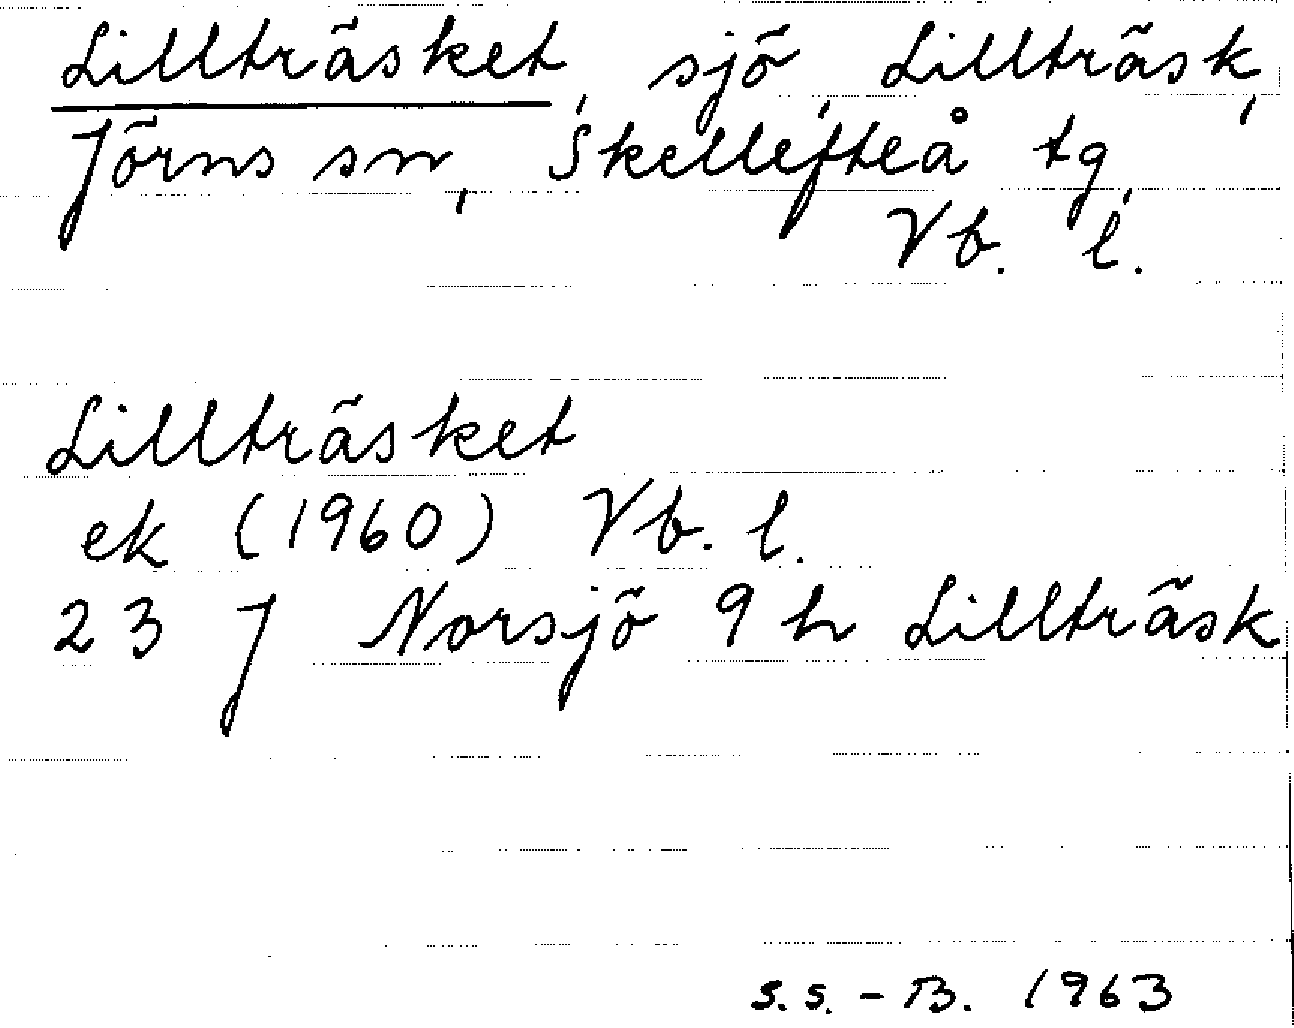 Lillträsket, sjö, Lillträsk,
Jörns sn, Skellefteå tg,
Vb. l.
Lillträsket
ek (1960) Vb. l.
23 J Norsjö 9 h Lillträsk
S.S. - B. 1963